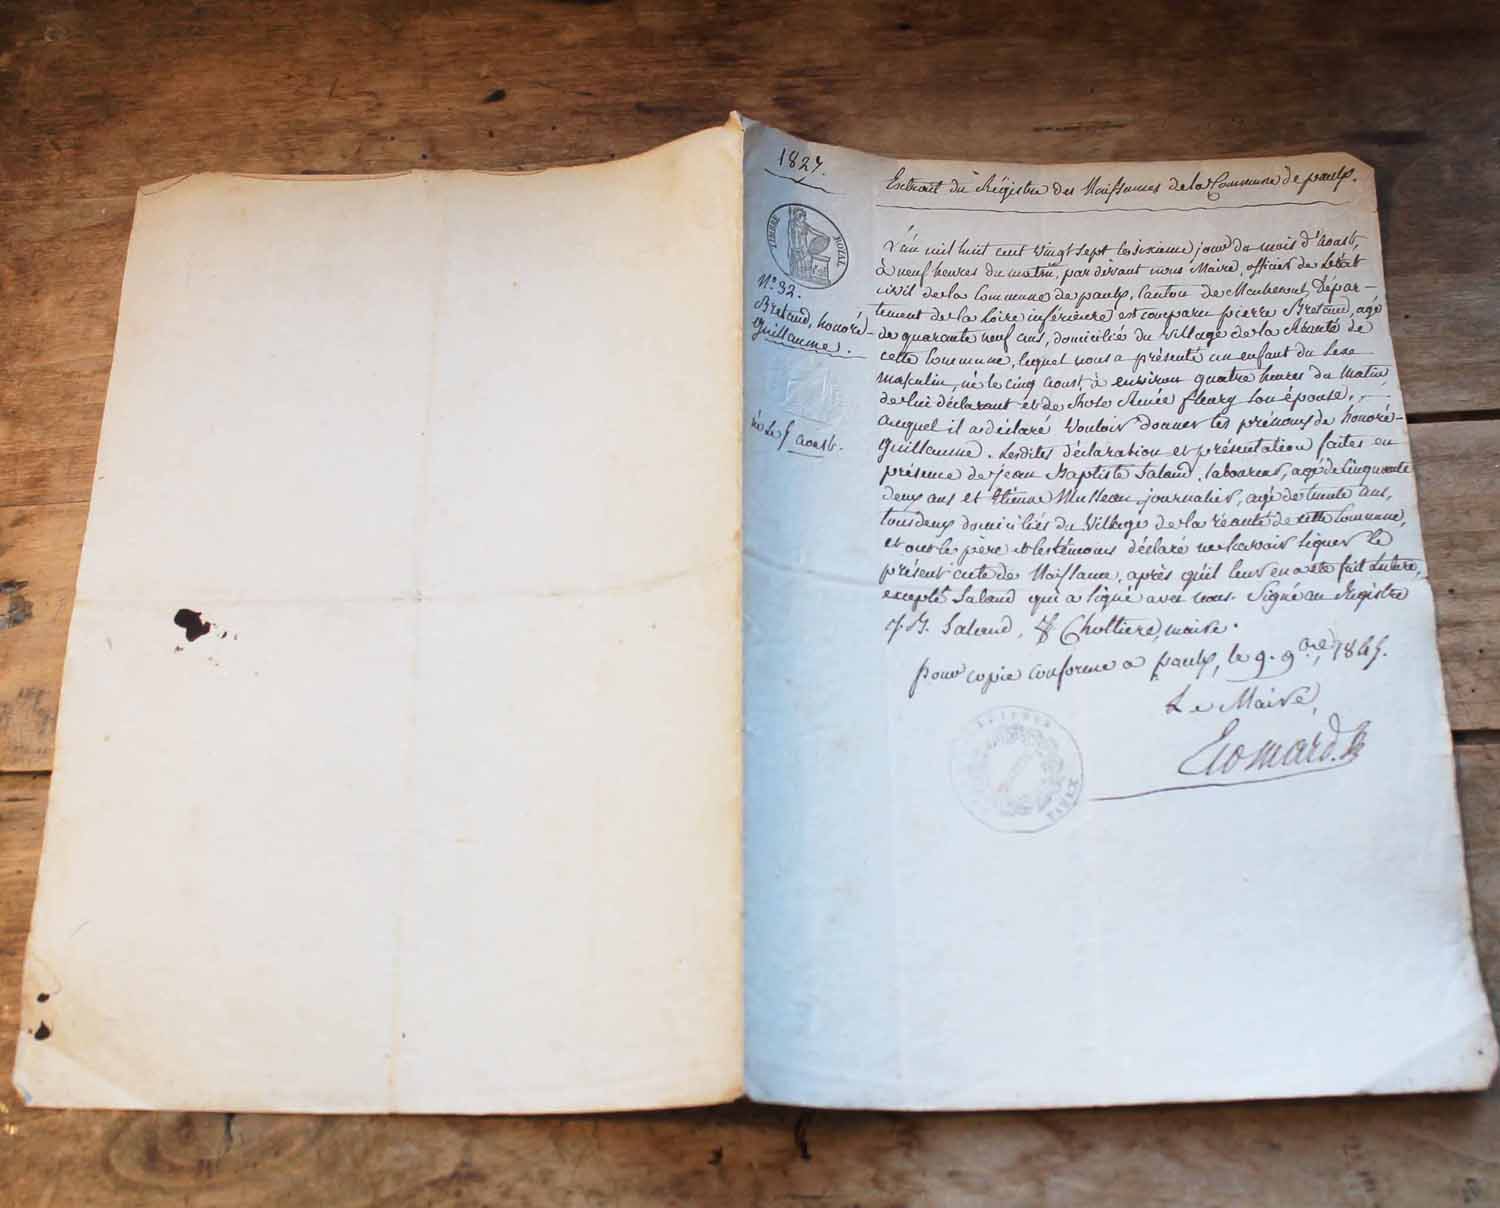 1827.
Extrait du Régistre des Naissances de la Commune de paulx.
TIMBRE ROYAL
N.° 32.
Bretaud, honoré-
Guillaume.
né le 5 aoust.
L'an mil huit cent vingt sept le sixième jour du mois d'aoust,
à neuf heures du matin, par devant nous Maire, officier de l'état
civil de la Commune de paulx, Canton de Machecoul, Dépar-
tement de la Loire inférieure est comparu pierre Bretaud, agé
de quarante neuf ans, domicilié du Village de la
cette Commune, lequel nous a présenté un enfant du Sexe
masculin, né le cinq aoust, à environ quatre heures du matin,
de lui déclarant et de Rose Aimée fleury son épouse,
auquel il a déclaré Vouloir donner les prénoms de honoré-
Guillaume. Lesdites déclaration et présentation faites en
présence de jean Baptiste Salaud, laboureur, agé de Cinquante
deux ans et Etienne Musseau, journalier, agé de trente ans,
tous deux domiciliés du Village de la de cette Commune,
et ont le père et les témoins déclaré ne savoir signer le
présent acte de Naissance, après qu'il leur en a été fait Lecture,
excepté Salaud qui a signé avec nous. Signé au Régistre
J. B. Salaud, Chottiere, maire.
pour copie conforme a paulx, le 9. 9.bre, 1845.
Le Maire,